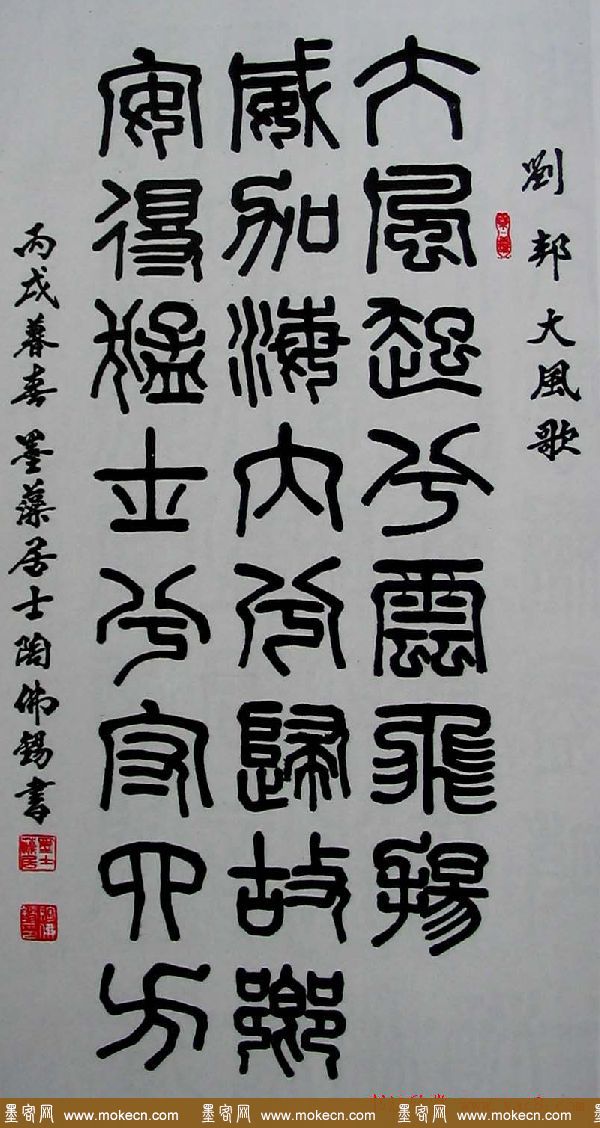 劉邦大風歌
大風起兮雲飛揚
威加海內兮歸故鄉
安得猛士兮守四方
丙戌暮春 墨藻居士陶佛錫書
墨客网 www.mokecn.com 墨客网 www.mokecn.com 墨客网 www.mokecn.com